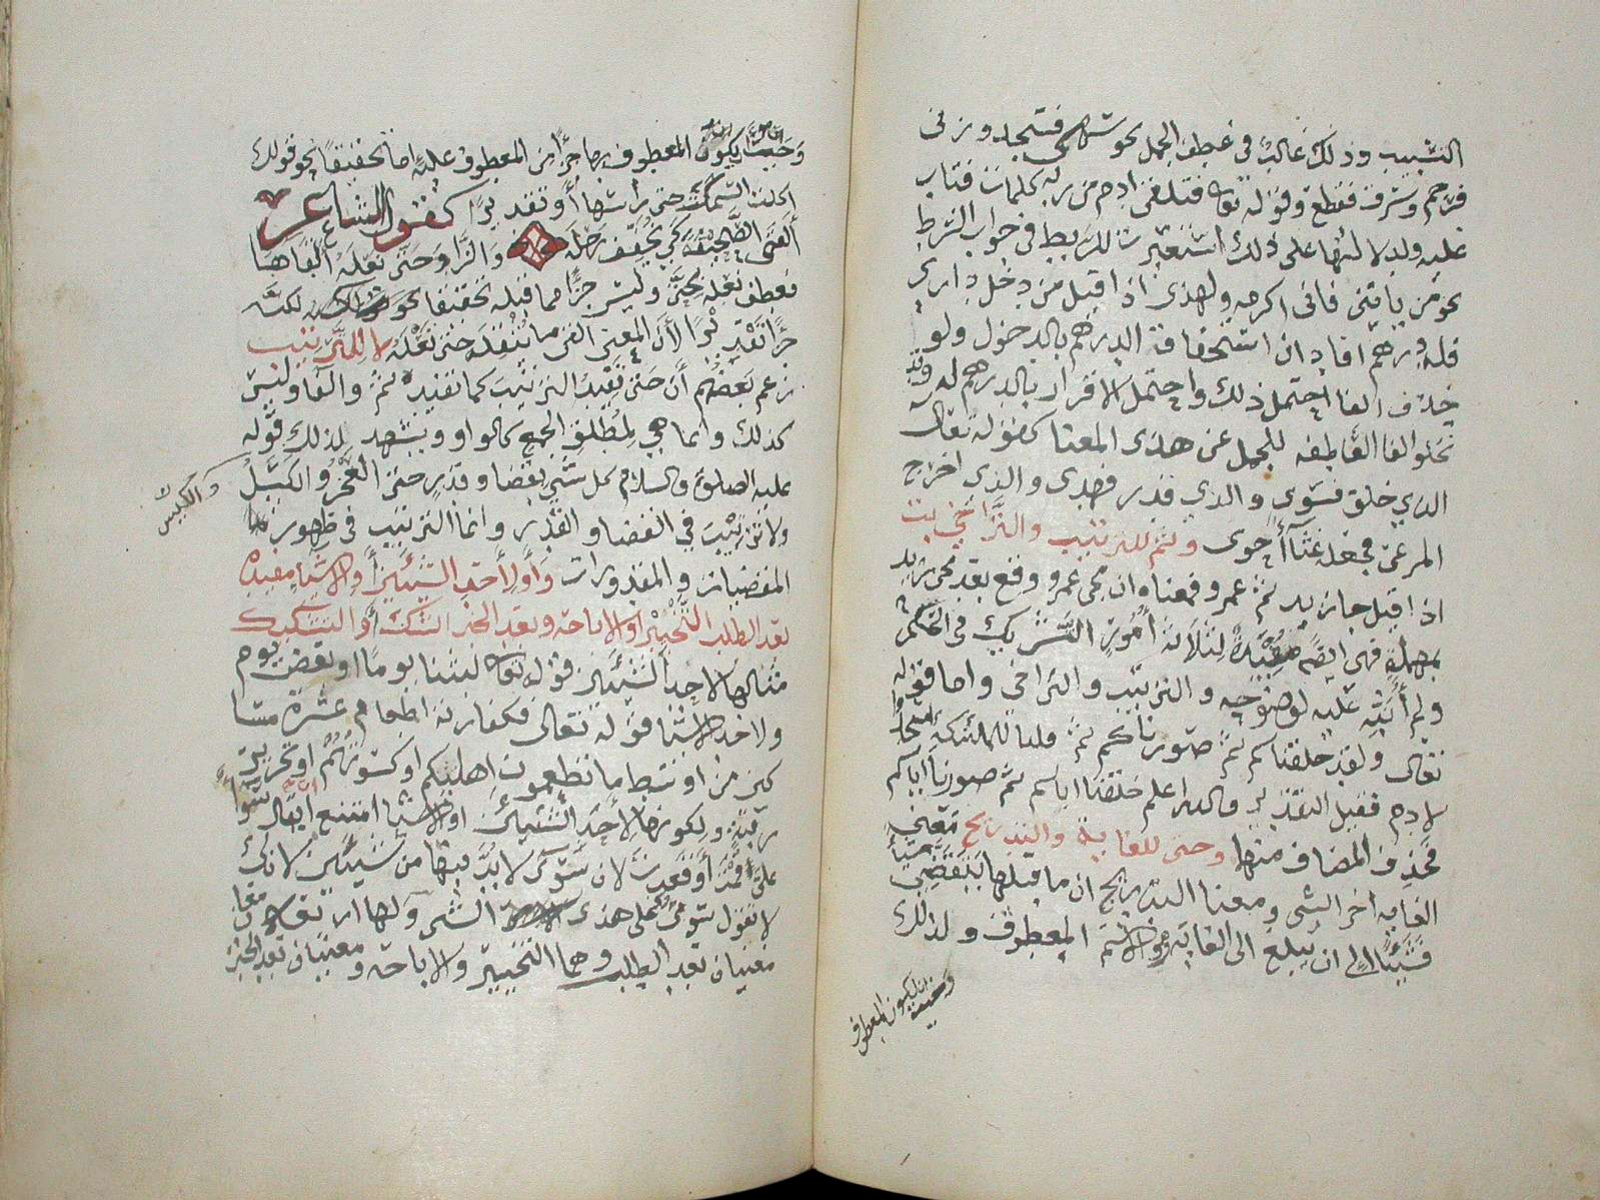 التسبيب وذلك غالب في عطف الجمل نحو سها فسجد وزنى
فرجم وسرق فقطع وقوله تعالى فتلقى ادم من ربه كلمات فتاب
عليه ولدلالتها على ذلك استعيرت للربط في جواب الشرط
نحو من ياتني فاني اكرمه ولهذى اذا قيل من دخل داري
فله درهم افاد ان استحقاقه الدرهم بالدخول ولو
حذف الفا احتمل ذلك واحتمل الاقرار بالدرهم له وقد
تخلو الفا العاطفه للجمل عن هذى المعنا كقوله تعالى
الذي خلق فسوى والذي قدر فهدى والذي اخرج
المرعى فجعله غثآ أحوى وثم للترتيب والتراخي
اذا قيل جا زيد ثم عمرو فمعناه ان مجي عمرو وقع بعد مجي زيد
بمهملة فهي ايضا مفيدة لثلاثة أمور التشريك في الحكم
ولم أنبّه عليه لوضوحه والترتيب والتراخى واما قوله
تعالى ولقد خلقناكم ثم صورناكم ثم قلنا للملئكة اسجدوا
لادم فقيل التقدير والله اعلم خلقنا اباكم ثم صورنا اباكم
فحذف المضاف منهما وحتى للغاية والتدريج معنى
الغايه اخر الشي ومعنا التدريج ان ما قبلها ينقضي شيأ
فشيئا الى ان يبلغ الى الغاية وهو الاسم المعطوف ولذلك
وجب ان يكون المعطوف
وجب ان يكون المعطوف بها جزأ من المعطوف عليه اما تحقيقا نحو قولك
اكلت السمكت حتى راسها أو تقديرا كقول الشاعر
ألقى الصحيفة كي يخفف رحله والزاد حتى نعله ألقاها
فعطف نعله بحتى وليس جزا مما قبله تحقيقا لكنه
جزأ تقديرا لأن المعنى القى ما يثقله حتى نعله لا للترتيب
زعم بعضهم أن حتى تفيد الترتيب كما تفيده ثم والفا وليس
كذلك وانما هي لمطلق الجمع كالواو ويشهد لذلك قوله
عليه الصلاة والسلام كل شي بقضا وقدر حتى العجز والكيس
والكيس
ولا ترتيب في القضا والقدر وانما الترتيب في ظهور
المقضيات والمقدورات وأو لأحد الشيئين أو الاشيا مفيده
بعد الطلب التخيير او الاباحة وبعد الخبر الشك أو التشكيك
مثالها لاحد الشيئين قوله تعالى لبثنا يوما او بعض يوم
ولاحد الاشيا قوله تعالى فكفارته اطعام عشرة مسا
كين من اوسط ما تطعمون اهليكم او كسوتهم او تحرير
رقبة ولكونها لاحد الشيئين او الاشيا امتنع ان يقال سوآ
علي أقمت أو قعدت لان سوى لا بد فيها من شيئين لانك
لا تقول سوى علي هذى الشي ولها اربعة معان
معنيان بعد الطلب وهما التخيير والاباحة ومعنيان بعد الخبر